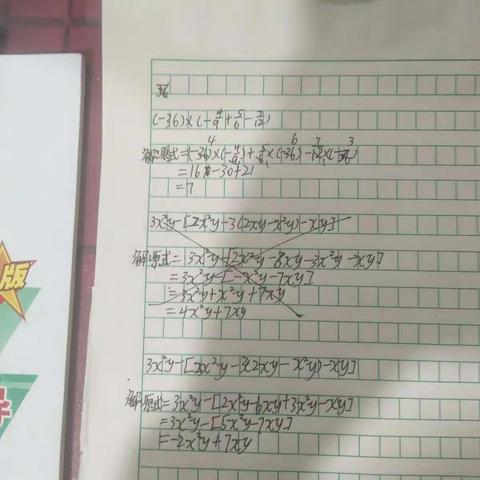 36
(-36)×(-4/9+5/6-7/12)
解:原式=(-36)×(-4/9)+5/6×(-36)-7/12×(-36)
=16-30+21
=7
3x²y-[2x²y+3(2xy-x²y)-xy]
解:原式=3x²y-[2x²y-8xy-3x²y-xy]
=3x²y-[-x²y-7xy]
=3x²y+x²y+7xy
=4x²y+7xy
3x²y-[2x²y-3(2xy-x²y)-xy]
解:原式=3x²y-[2x²y-6xy+3x²y-xy]
=3x²y-[5x²y-7xy]
=-2x²y+7xy
版